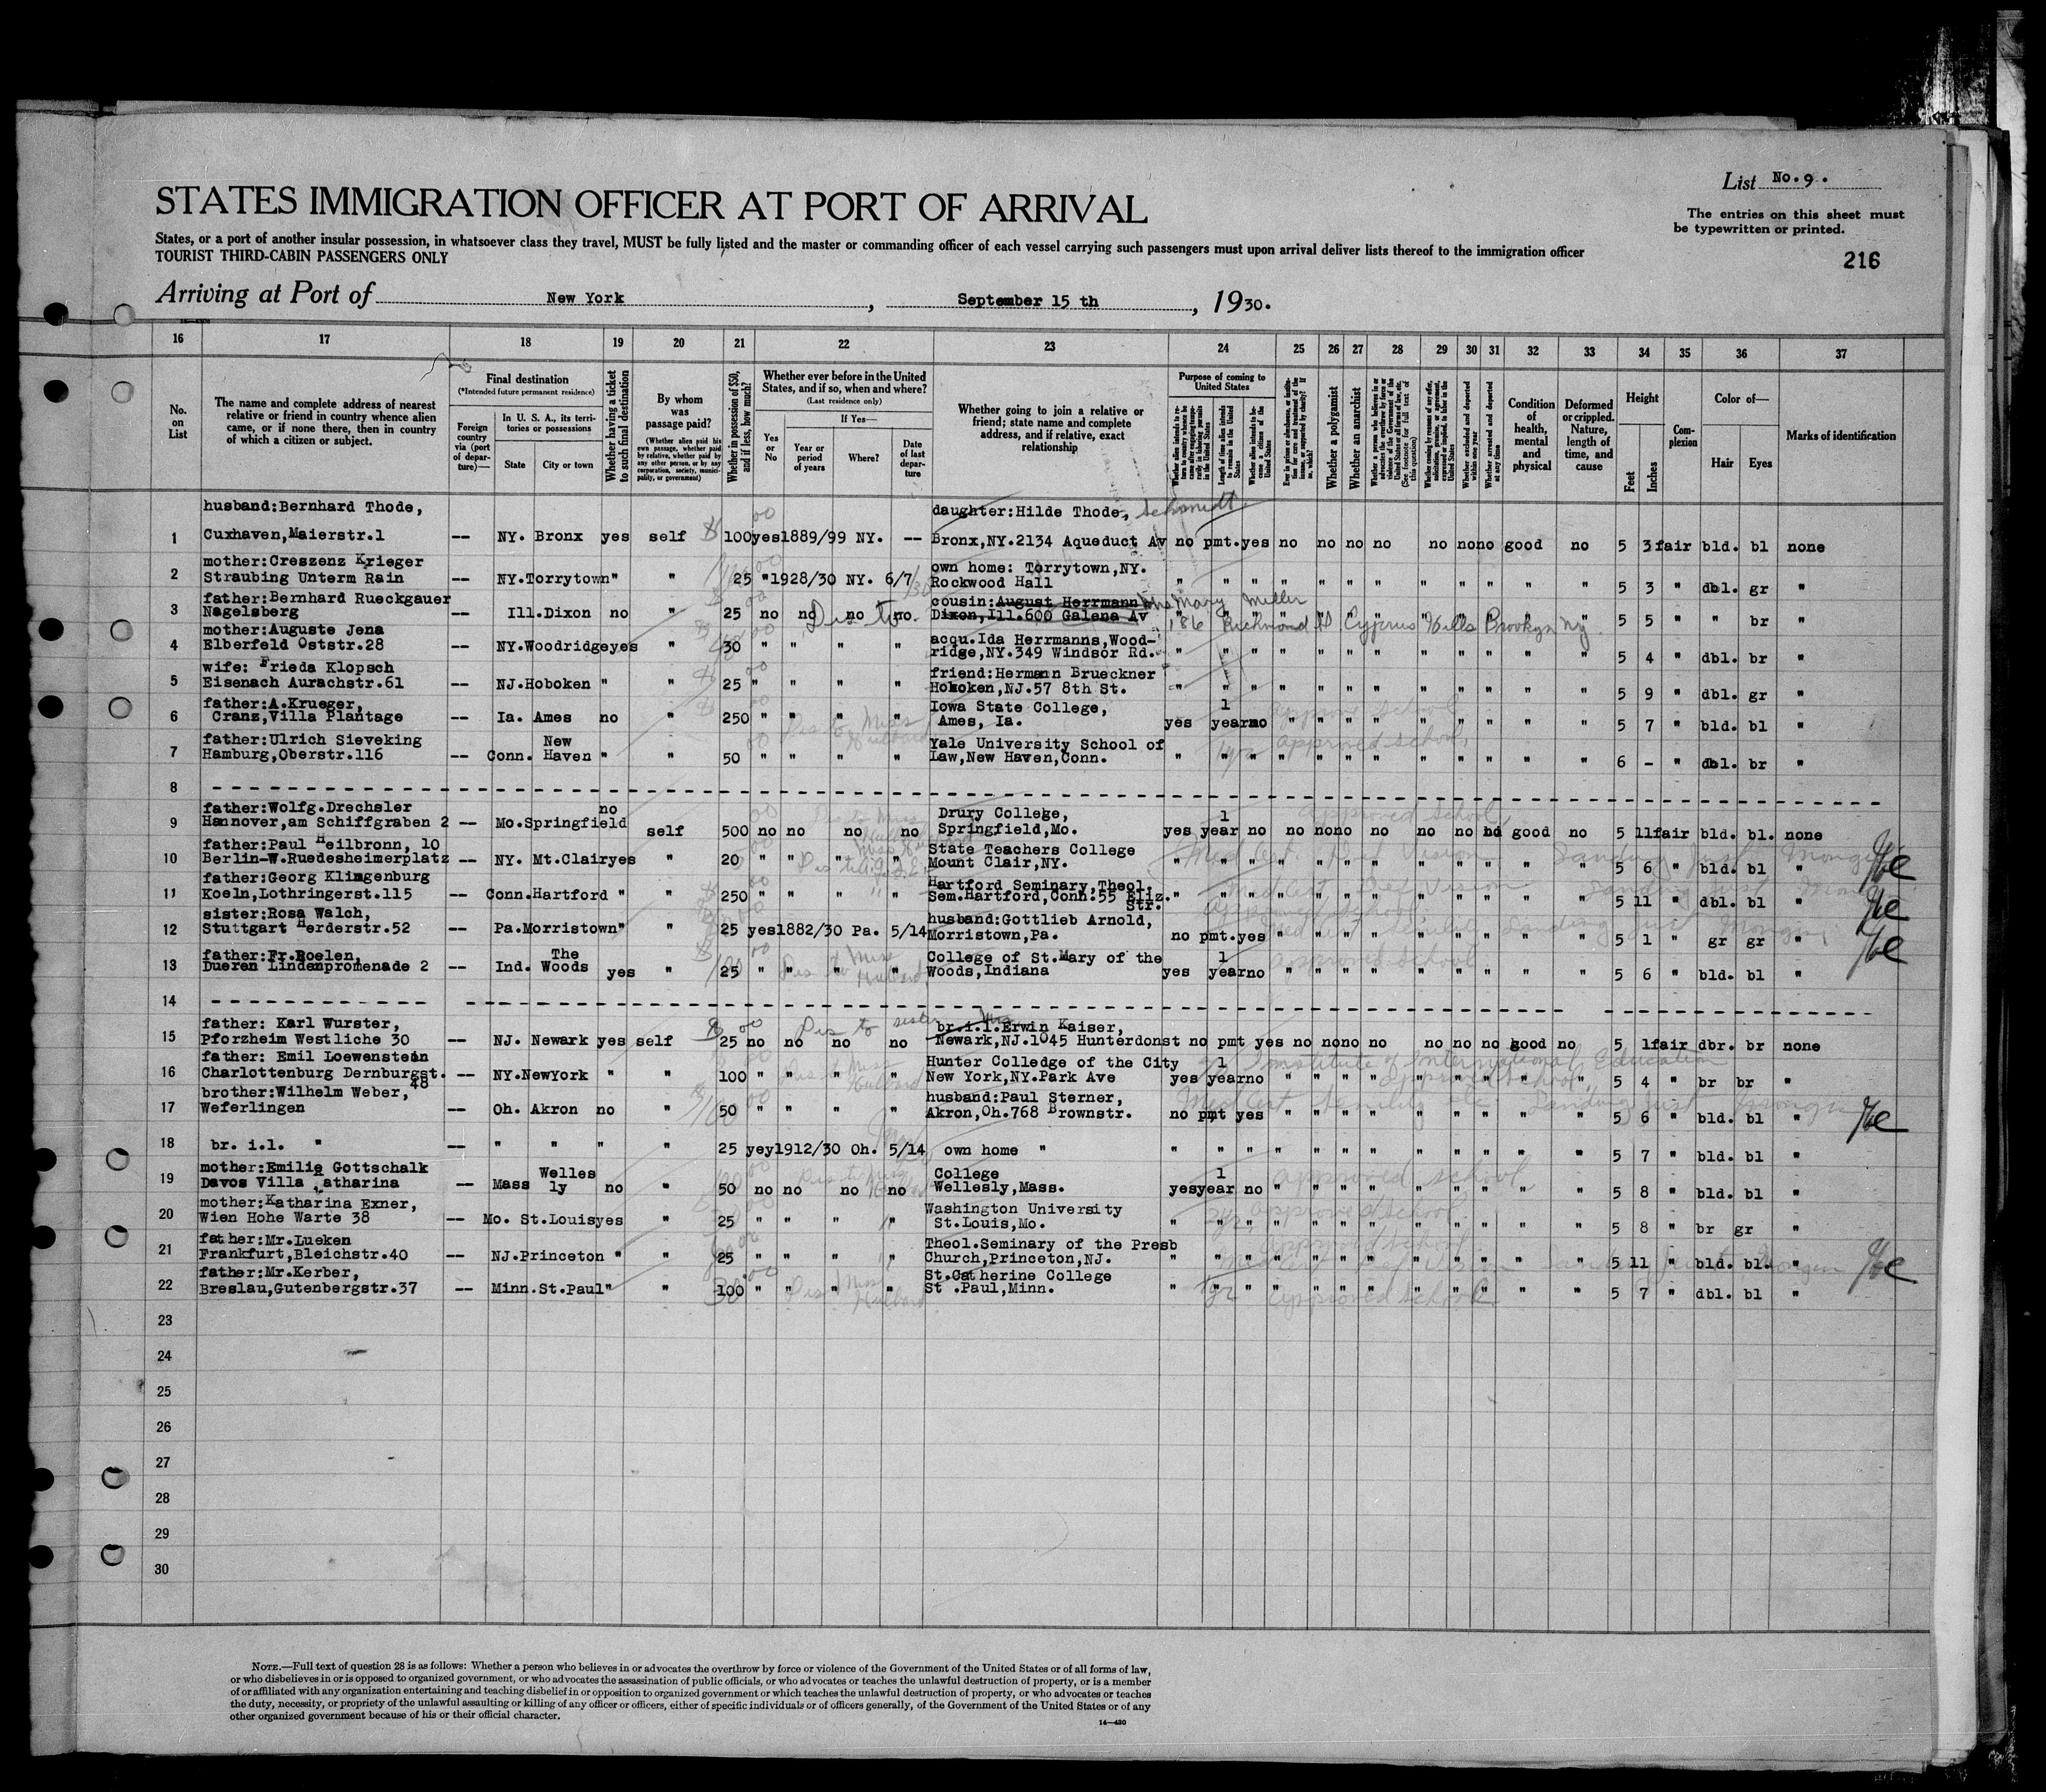 List No. 9.
STATES IMMIGRATION OFFICER AT PORT OF ARRIVAL
The entries on this sheet must
be typewritten or printed.
States, or a port of another insular possession, in whatsoever class they travel, MUST be fully listed and the master or commanding officer of each vessel carrying such passengers must upon arrival deliver lists thereof to the immigration officer
TOURIST THIRD-CABIN PASSENGERS ONLY
216
Arriving at Port of New York, September 15 th, 1930.
16 17 18 19 20 21 22 23 24 25 26 27 28 29 30 31 32 33 34 35 36 37
No. on List
The name and complete address of nearest relative or friend in country whence alien came, or if none there, then in country of which a citizen or subject.
Final destination
(*Intended future permanent residence)
Foreign country via (port of departure)—
In U. S. A., its territories or possessions
State City or town
Whether having a ticket to such final destination
By whom was passage paid?
(Whether alien paid his own passage, whether paid by relative, whether paid by any other person, or by any corporation, society, municipality, or government)
Whether in possession of $50, and if less, how much?
Whether ever before in the United States, and if so, when and where?
(Last residence only)
Yes or No
If Yes—
Year or period of years
Where?
Date of last departure
Whether going to join a relative or friend; state name and complete address, and if relative, exact relationship
Purpose of coming to United States
Whether a polygamist
Whether an anarchist
Condition of health, mental and physical
Deformed or crippled. Nature, length of time, and cause
Height
Feet Inches
Complexion
Color of—
Hair Eyes
Marks of identification
husband:Bernhard Thode, daughter:Hilde Thode, Schmidt
1 Cuxhaven,Maierstr.1 -- NY. Bronx yes self 100 yes 1889/99 NY. -- Bronx,NY.2134 Aqueduct Av no pmt. yes no no no no no no no good no 5 3 fair bld. bl none
mother:Creszenz Krieger own home: Torrytown,NY.
2 Straubing Unterm Rain -- NY.Torrytown " " 25 " 1928/30 NY. 6/7 Rockwood Hall " " " " " " " " " " " " 5 3 " dbl. gr "
father:Bernhard Rueckgauer cousin:August Herrmann Mary Miller
3 Nagelsberg -- Ill.Dixon no " 25 no no no no Dixon,Ill.600 Galena Av 186 Richmond St Cyprus Hills Brooklyn NY 5 5 " " br "
mother:Auguste Jena acqu.Ida Herrmanns,Wood-
4 Elberfeld Oststr.28 -- NY.Woodridge yes " 30 " " " " ridge,NY.349 Windsor Rd. " " " " " " " " " " " " 5 4 " dbl. br "
wife: Frieda Klopsch friend:Hermann Brueckner
5 Eisenach Aurachstr.61 -- NJ.Hoboken " " 25 " " " " Hoboken,NJ.57 8th St. " " " " " " " " " " " 5 9 " dbl. gr "
father:A.Krueger, Iowa State College, 1
6 Cranz,Villa Plantage -- Ia. Ames no " 250 " " " " Ames, Ia. yes year no " " " " " " " " " 5 7 " bld. bl "
father:Ulrich Sieveking New Yale University School of approved school
7 Hamburg,Oberstr.116 -- Conn. Haven " " 50 " " " " Law,New Haven,Conn. " " " " " " " " " " " " 6 - " dbl. br "
8
father:Wolfg.Drechsler no Drury College, 1 approved school
9 Hannover,am Schiffgraben 2 -- Mo.Springfield self 500 no no no no Springfield,Mo. yes year no no no no no no no no good no 5 11 fair bld. bl. none
father:Paul Heilbronn, 10 State Teachers College
10 Berlin-W.Ruedesheimerplatz -- NY. Mt.Clair yes " 20 " " " " Mount Clair,NY. " " " " " " " " " " " " 5 6 " bld. bl "
father:Georg Klingenburg Hartford Seminary,Theol.
11 Koeln,Lothringerst.115 -- Conn.Hartford " " 250 " " " " Sem.Hartford,Conn.55 Eliz. Str. " " " " " " " " " " " 5 11 " dbl. bl "
sister:Rosa Walch, husband:Gottlieb Arnold,
12 Stuttgart Herderstr.52 -- Pa.Morristown " " 25 yes 1882/30 Pa. 5/14 Morristown,Pa. no pmt. yes " " " " " " " " " 5 1 " gr gr "
father:Fr.Roelen, The College of St.Mary of the 1
13 Dueren Lindenpromenade 2 -- Ind. Woods yes " 25 " " " " Woods,Indiana yes year no " " " " " " " " " 5 6 " bld. bl "
14
father: Karl Wurster, br.i.l.Erwin Kaiser,
15 Pforzheim Westliche 30 -- NJ. Newark yes self 25 no no no no Newark,NJ.1045 Hunterdonst no pmt yes no no no no no no no good no 5 1 fair dbr. br none
father: Emil Loewenstein Hunter Colledge of the City 1 Institute of International Education
16 Charlottenburg Dernburgst. 48 -- NY.NewYork " " 100 " " " " New York,NY.Park Ave yes year no " " " " " " " " " 5 4 " br br "
brother:Wilhelm Weber, husband:Paul Sterner,
17 Weferlingen -- Oh. Akron no " 50 " " " " Akron,Oh.768 Brownstr. no pmt yes " " " " " " " " " 5 6 " bld. bl "
18 br. i.l. " -- " " " " 25 yey 1912/30 Oh. 5/14 own home " " " " " " " " " " " " " 5 7 " bld. bl "
mother:Emilie Gottschalk Welles College 1 approved school
19 Davos Villa Katharina -- Mass ly no " 50 no no no no Wellesly,Mass. yes year no " " " " " " " " " 5 8 " bld. bl "
mother:Katharina Exner, Washington University approved school
20 Wien Hohe Warte 38 -- Mo. St.Louis yes " 25 " " " " St.Louis,Mo. " " " " " " " " " " " " 5 8 " br gr "
father:Mr.Lueken Theol.Seminary of the Presb
21 Frankfurt,Bleichstr.40 -- NJ.Princeton " " 25 " " " " Church,Princeton,NJ. " " " " " " " " " " " " 5 11 " bld. bl. "
father:Mr.Kerber, St.Catherine College
22 Breslau,Gutenbergstr.37 -- Minn.St.Paul " " 100 " " " " St .Paul,Minn. " " " approved school 5 7 " dbl. bl "
23
24
25
26
27
28
29
30
NOTE.—Full text of question 28 is as follows: Whether a person who believes in or advocates the overthrow by force or violence of the Government of the United States or of all forms of law,
or who disbelieves in or is opposed to organized government, or who advocates the assassination of public officials, or who advocates or teaches the unlawful destruction of property, or is a member
of or affiliated with any organization entertaining and teaching disbelief in or opposition to organized government or which teaches the unlawful destruction of property, or who advocates or teaches
the duty, necessity, or propriety of the unlawful assaulting or killing of any officer or officers, either of specific individuals or of officers generally, of the Government of the United States or of any
other organized government because of his or their official character.
14—430